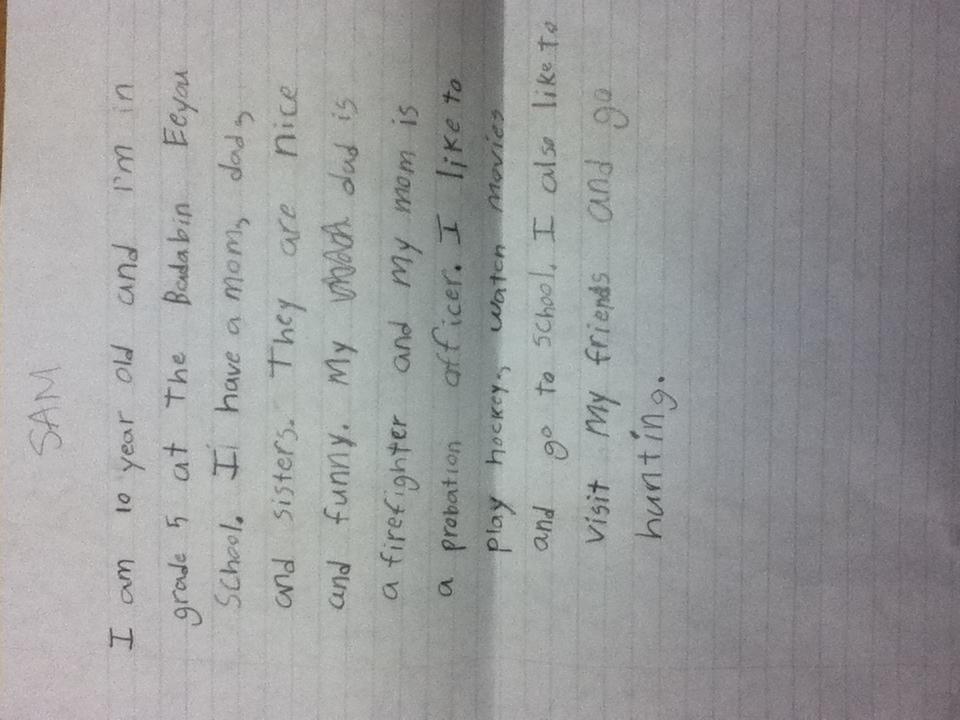 SAM
I am 10 year old and I'm in
grade 5 at the Badabin Eeyou
School. I have a mom, dad,
and sisters. They are nice
and funny. My dad is
a firefighter and my mom is
a probation officer. I like to
play hockey, watch movies
and go to school. I also like to
visit my friends and go
hunting.